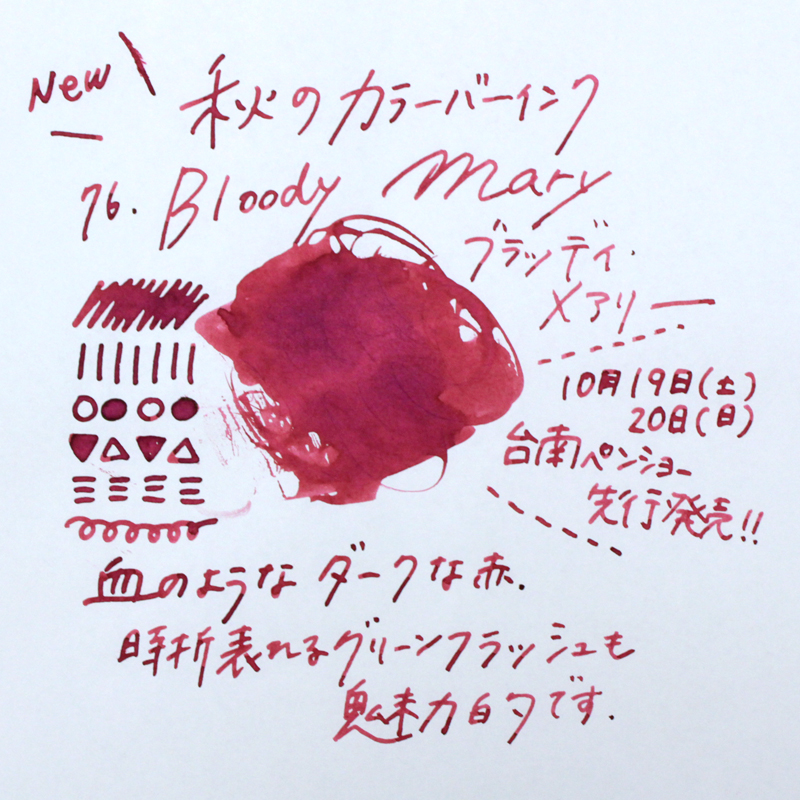 New
秋のカラーバーインク
76. Bloody Mary
ブラッディ・
メアリー
10月19日(土)
20日(日)
台南ペンショー
先行発売!!
血のようなダークな赤.
時折表れるグリーンフラッシュも
魅力的です.